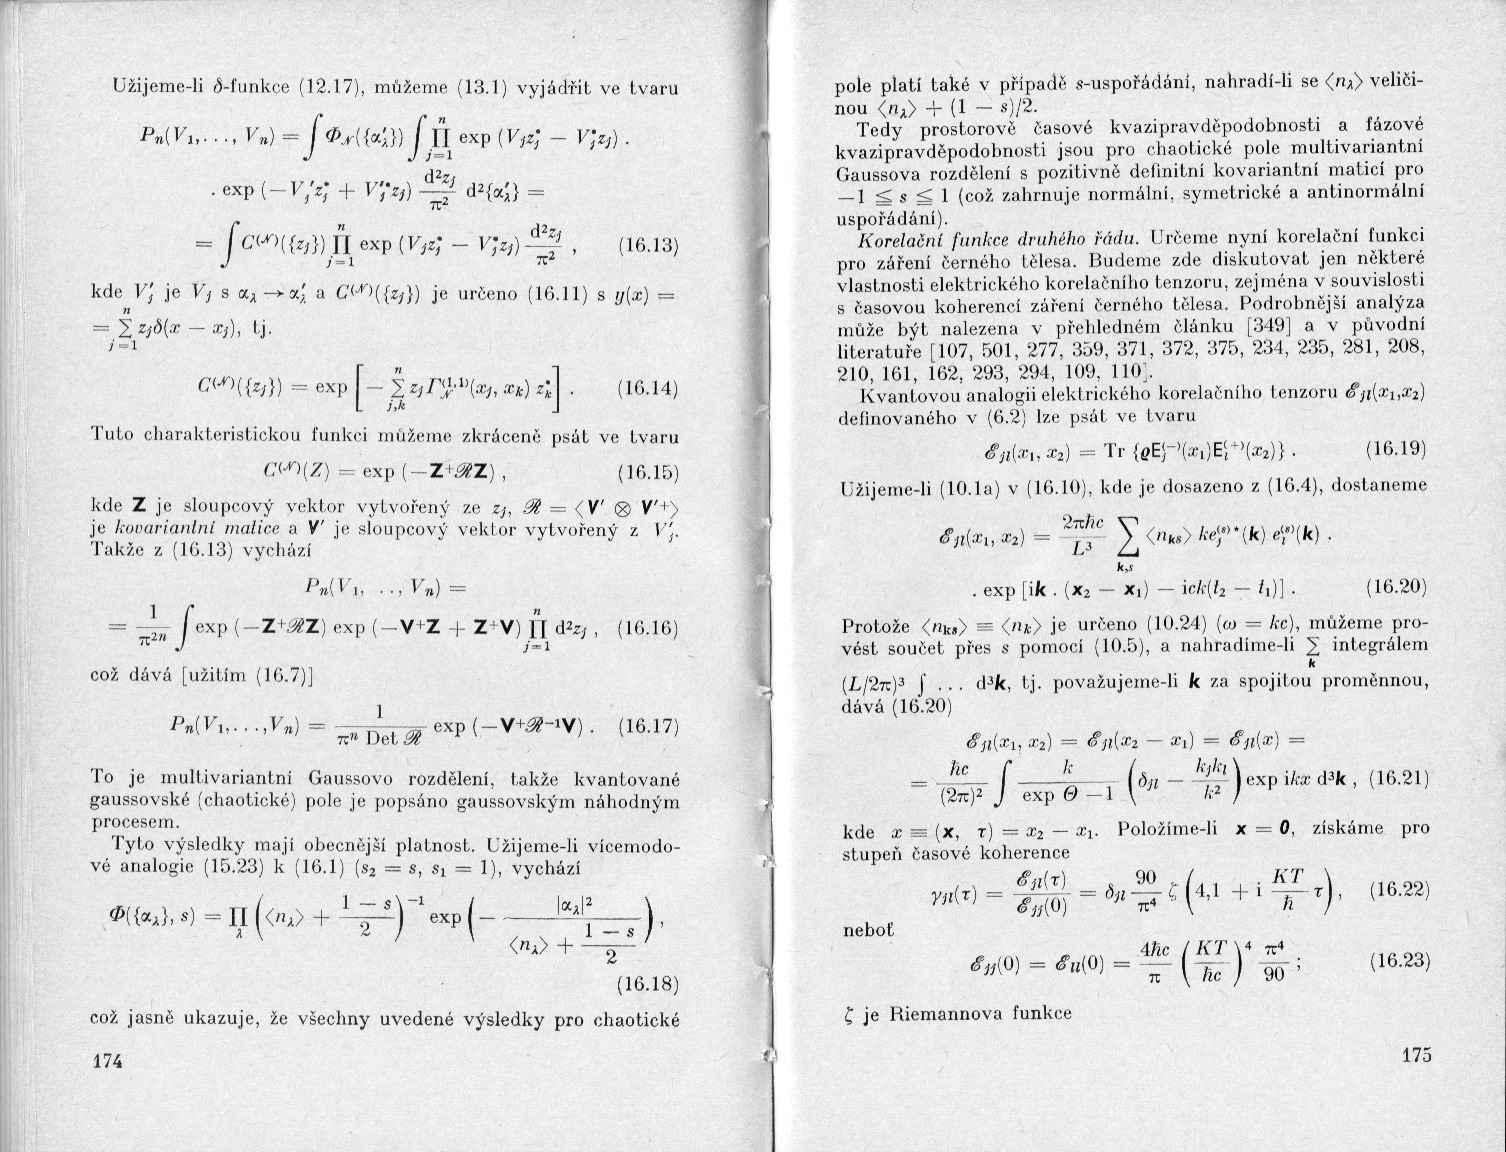 Užijeme-li δ-funkce (12.17), můžeme (13.1) vyjádřit ve tvaru
Pₙ(V₁,..., Vₙ) = ∫ Φ_𝒩({α'_λ}) ∫ ∏_{j=1}^{n} exp (V_j z_j* − V_j* z_j) .
. exp (−V_j' z_j* + V_j'* z_j) d²z_j/π² d²{α'_λ} =
= ∫ C^(𝒩)({z_j}) ∏_{j=1}^{n} exp (V_j z_j* − V_j* z_j) d²z_j/π² , (16.13)
kde V'_j je V_j s α_λ → α'_λ a C^(𝒩)({z_j}) je určeno (16.11) s y(x) =
= ∑_{j=1}^{n} z_j δ(x − x_j), tj.
C^(𝒩)({z_j}) = exp [− ∑_{j,k}^{n} z_j Γ_𝒩^(1,1)(x_j, x_k) z_k*] . (16.14)
Tuto charakteristickou funkci můžeme zkráceně psát ve tvaru
C^(𝒩)(Z) = exp (−Z⁺ℛZ) , (16.15)
kde Z je sloupcový vektor vytvořený ze z_j, ℛ = ⟨V' ⊗ V'⁺⟩
je kovariantní matice a V' je sloupcový vektor vytvořený z V'_j.
Takže z (16.13) vychází
Pₙ(V₁, . ., Vₙ) =
= 1/π²ⁿ ∫ exp (−Z⁺ℛZ) exp (−V⁺Z + Z⁺V) ∏_{j=1}^{n} d²z_j , (16.16)
což dává [užitím (16.7)]
Pₙ(V₁,...,Vₙ) = 1/(πⁿ Det ℛ) exp (−V⁺ℛ⁻¹V) . (16.17)
To je multivariantní Gaussovo rozdělení, takže kvantované
gaussovské (chaotické) pole je popsáno gaussovským náhodným
procesem.
Tyto výsledky mají obecnější platnost. Užijeme-li vícemodo-
vé analogie (15.23) k (16.1) (s₂ = s, s₁ = 1), vychází
Φ({α_λ}, s) = ∏_λ (⟨n_λ⟩ + (1 − s)/2)⁻¹ exp (− |α_λ|²/(⟨n_λ⟩ + (1 − s)/2)) ,
(16.18)
což jasně ukazuje, že všechny uvedené výsledky pro chaotické
174
pole platí také v případě s-uspořádání, nahradí-li se ⟨n_λ⟩ veliči-
nou ⟨n_λ⟩ + (1 − s)/2.
Tedy prostorově časové kvazipravděpodobnosti a fázové
kvazipravděpodobnosti jsou pro chaotické pole multivariantní
Gaussova rozdělení s pozitivně definitní kovariantní maticí pro
−1 ≦ s ≦ 1 (což zahrnuje normální, symetrické a antinormální
uspořádání).
Korelační funkce druhého řádu. Určeme nyní korelační funkci
pro záření černého tělesa. Budeme zde diskutovat jen některé
vlastnosti elektrického korelačního tenzoru, zejména v souvislosti
s časovou koherencí záření černého tělesa. Podrobnější analýza
může být nalezena v přehledném článku [349] a v původní
literatuře [107, 501, 277, 359, 371, 372, 375, 234, 235, 281, 208,
210, 161, 162, 293, 294, 109, 110].
Kvantovou analogii elektrického korelačního tenzoru ℰ_jl(x₁,x₂)
definovaného v (6.2) lze psát ve tvaru
ℰ_jl(x₁, x₂) = Tr {ϱE_j^(−)(x₁)E_l^(+)(x₂)} . (16.19)
Užijeme-li (10.1a) v (16.10), kde je dosazeno z (16.4), dostaneme
ℰ_jl(x₁, x₂) = 2πħc/L³ ∑_{k,s} ⟨n_ks⟩ ke_j^(s)*(k) e_l^(s)(k) .
. exp [ik . (x₂ − x₁) − ick(t₂ − t₁)] . (16.20)
Protože ⟨n_ks⟩ ≡ ⟨n_k⟩ je určeno (10.24) (ω = kc), můžeme pro-
vést součet přes s pomocí (10.5), a nahradíme-li ∑_k integrálem
(L/2π)³ ∫ ... d³k, tj. považujeme-li k za spojitou proměnnou,
dává (16.20)
ℰ_jl(x₁, x₂) = ℰ_jl(x₂ − x₁) = ℰ_jl(x) =
= ħc/(2π)² ∫ k/(exp Θ − 1) (δ_jl − k_j k_l/k²) exp ikx d³k , (16.21)
kde x ≡ (x, τ) = x₂ − x₁. Položíme-li x = 0, získáme pro
stupeň časové koherence
γ_jl(τ) = ℰ_jl(τ)/ℰ_jj(0) = δ_jl 90/π⁴ ζ (4,1 + i KT/ħ τ) , (16.22)
neboť
ℰ_jj(0) = ℰ_ll(0) = 4ħc/π (KT/ħc)⁴ π⁴/90 ; (16.23)
ζ je Riemannova funkce
175